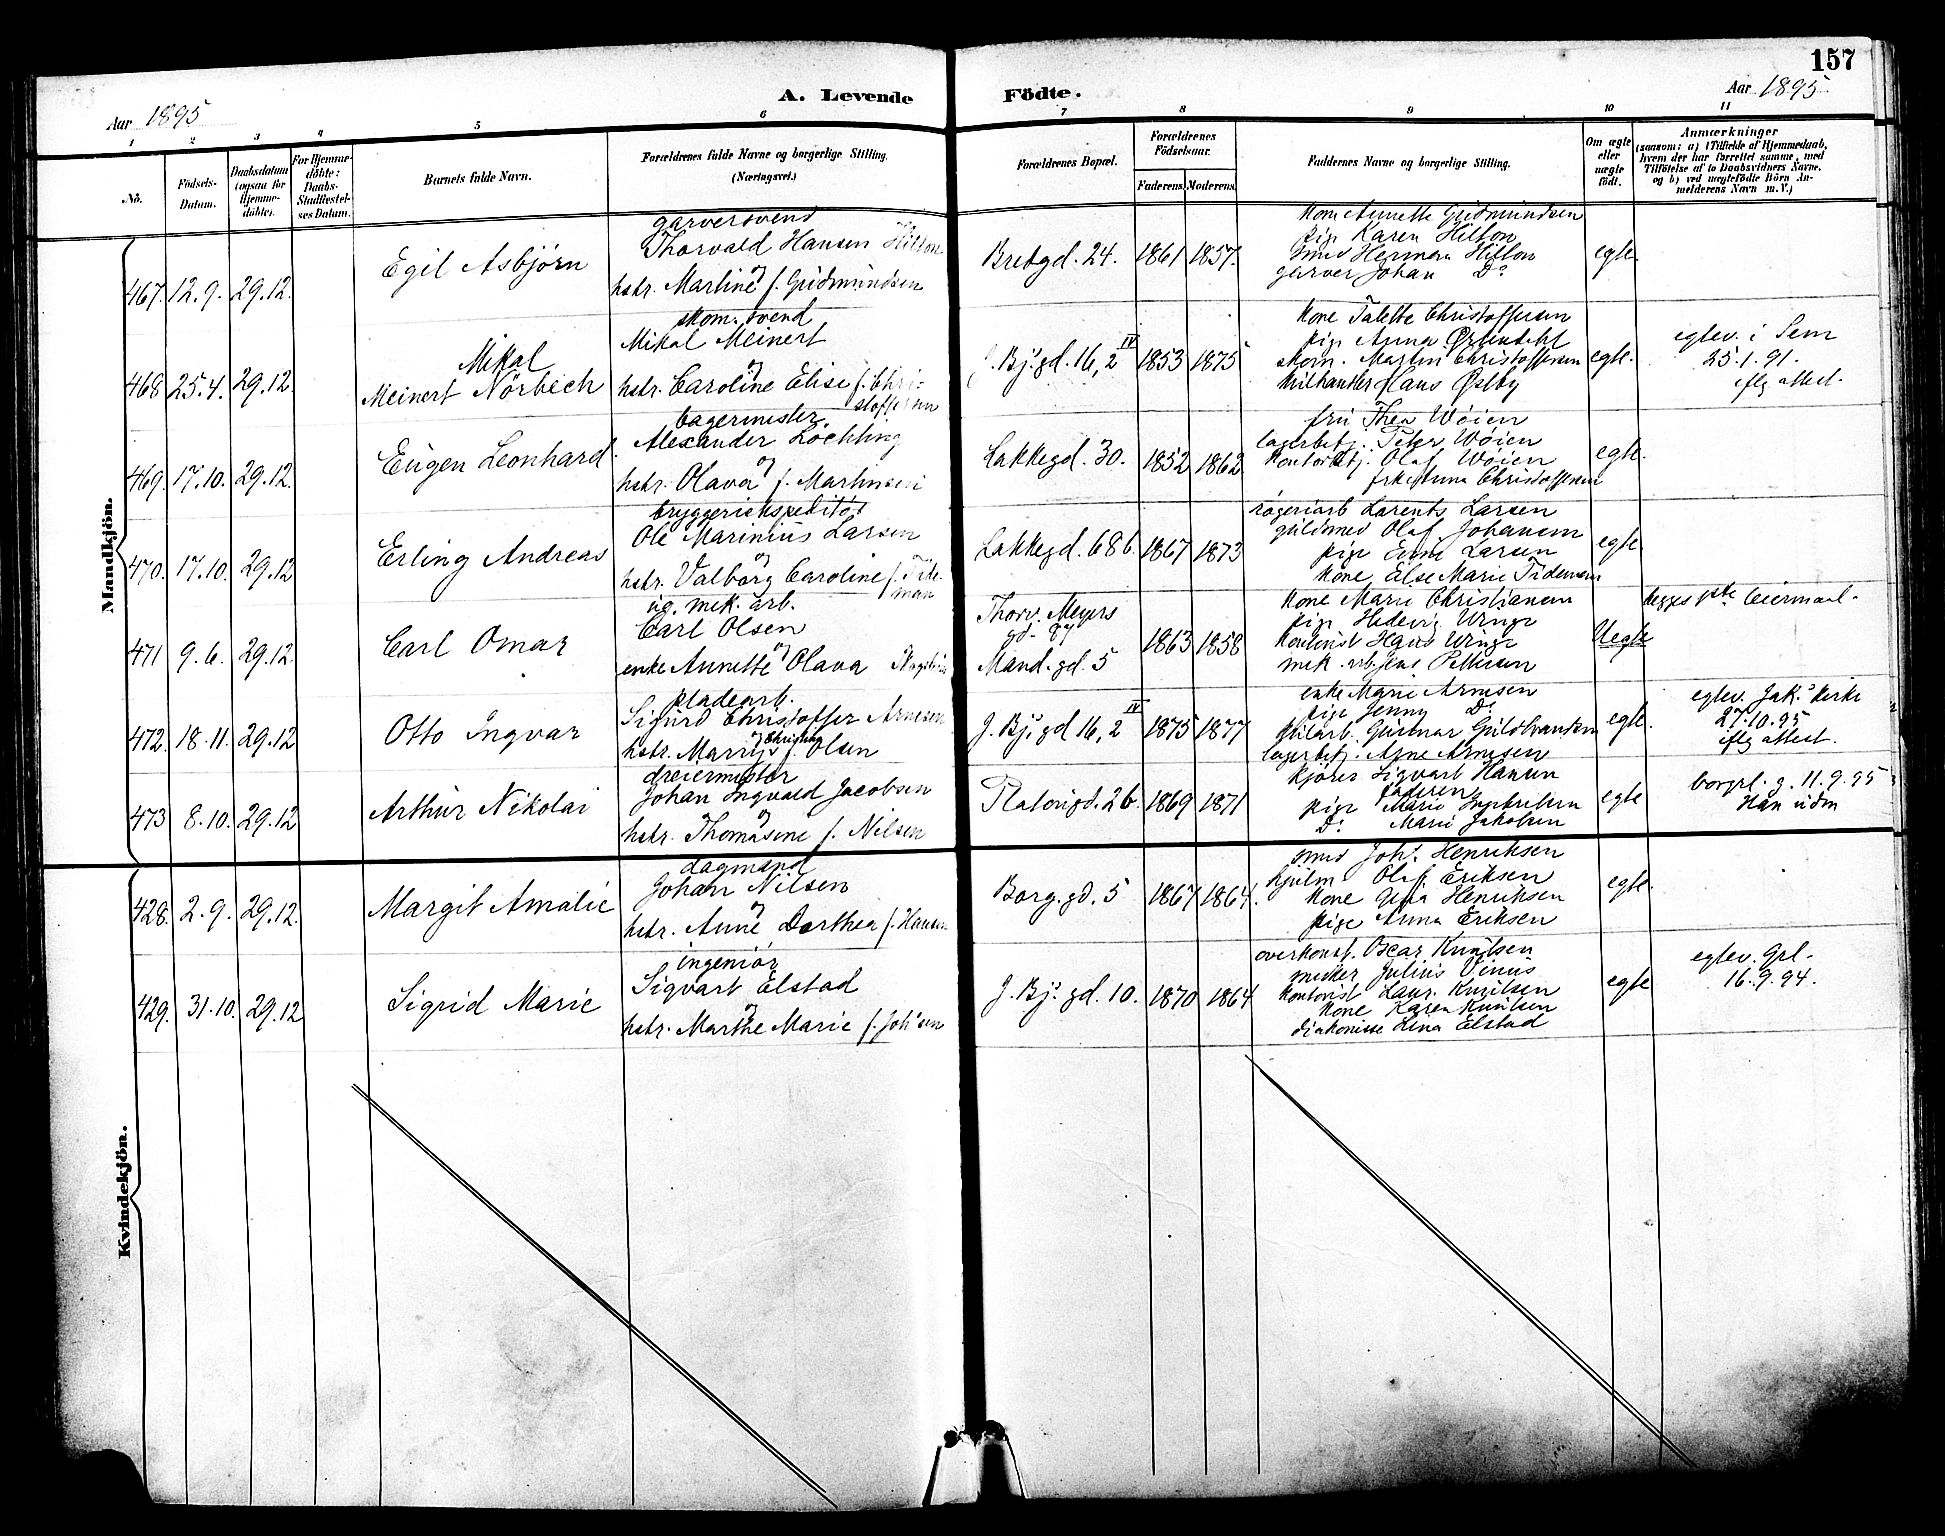 157
Aar 1895
A. Levende Födte.
Aar 1895
1 2 3 4 5 6 7 8 9 10 11
No.
Födsels-Datum.
Daabsdatum (ogsaa for Hjemmedöbte).
For Hjemmedöbte: Daabs-Stadfestelses Datum.
Barnets fulde Navn.
Forældrenes fulde Navne og borgerlige Stilling. (Næringsvei.)
Forældrenes Bopæl.
Forældrenes Födselsaar.
Faderens. Moderens.
Faddernes Navne og borgerlige Stilling.
Om ægte eller uægte födt.
Anmærkninger
(saasom: a) i Tilfælde af Hjemmedaab, hvem der har forrettet samme, med Tilföielse af to Daabsvidners Navne, og b) ved uægtefödte Börn Anmelderens Navn m. V.)
Mandkjön.
467. 12.9. 29.12.
Egil Asbjörn
garversvend
Thorvald Hansen Hilton
og
hstr. Martine f. Gudmundsen
Bredgd. 24. 1861 1857.
kone Annette Gudmundsen
pige Karen Hilton
smed Herman Hilton
garver Johan Do
egte.
468 25.4. 29.12
Mikal
Meinert Nörbech
skom.svend
Mikal Meinert
og
hstr. Caroline Elise f. Christoffersen
J. Bj.s gd. 16, 2 IV 1853 1875
kone Talette Christoffersen
pige Anna
skom. Martin Christoffersen
Hans Østby
egte.
egtev. i Sem
25.1.91.
iflg attest.
469. 17.10. 29.12.
Eugen Leonhard
bagermester
Alexander Löchting
og
hstr. Olava f. Martinsen
Lakkegd. 30. 1852 1862
fru Thea Wöien
lagerbetj. Peter Wöien
kontorbetj. Olaf Wöien
frk. Anna Christoffersen
egte.
470. 17.10. 29.12
Erling Andreas
bryggeriekspeditör
Ole Marinius Larsen
og
hstr. Valborg Caroline f. Tideman
Lakkegd. 68b. 1867 1873
Larents Larsen
guldsmed Olaf Johansen
pige Emma Larsen
kone Else Marie Tideman
egte
471 9.6. 29.12.
Carl Omar
ug. mek. arb.
Carl Olsen
og
enke Annette Olava
Thorv. Meyers
gd. 87
Mand. gd. 5
1863 1858
kone Marie Christiansen
pige Hedevig Winge
kontorist Hans Winge
mek. arb. Jens Pettersen
Uegte
begges 1ste Leiermaal.
472. 18.11. 29.12
Otto Ingvar
pladearb.
Sigurd Christoffer Arnesen
og Christine
hstr. Marry f. Olsen
J. Bj.s gd 16, 2 IV 1875 1877
enke Marie Arnesen
pige Jenny Do
filarb. Gunnar Guldbrandsen
lagerbetj. Arne Arnesen
egte.
egtev. Jak.s kirke
27.10.95
iflg attest.
473 8.10. 29.12
Arthur Nikolai
dreiermester
Johan Ingvald Jacobsen
og
hstr. Thomasine f. Nilsen
Platousgd. 26. 1869 1871
kjörer Sigvart Hansen
faderen
pige Marie Ingebretsen
Do Marie Jakobsen
egte
borgrl. g. 11.9.95
Han uden
Kvindekjön.
428. 2.9. 29.12.
Margit Amalie
dagmand
Johan Nilsen
og
hstr. Anne Dorthea f. Hansen
Borg.gd. 5 1867 1864.
smed Joh. Henriksen
hjulm Olaf Eriksen
kone Gina Henriksen
pige Anna Eriksen
egte.
429. 31.10. 29.12
Sigrid Marie
ingeniör
Sigvart Elstad
og
hstr. Marthe Marie f. Joh'sen
J. Bj.s gd. 10. 1870 1864
overkonst. Oscar Knudsen
Julius Vinis
kontorist Laur. Knudsen
kone Karen Knudsen
diakonisse Lina Elstad
egte
egtev. Grl.
16.9.94.